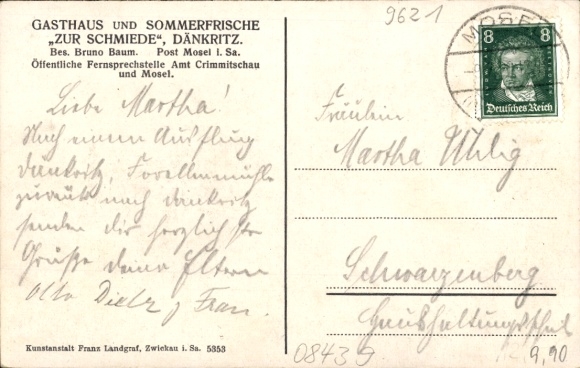 GASTHAUS UND SOMMERFRISCHE
„ZUR SCHMIEDE", DÄNKRITZ.
Bes. Bruno Baum. Post Mosel i. Sa.
Öffentliche Fernsprechstelle Amt Crimmitschau
und Mosel.
Liebe Martha!
Nach einem Ausflug
Dänkritz, Forellenmühle
zurück nach Dänkritz
senden dir herzlichste
Grüße deine Eltern
Otto Dietz u Frau.
Kunstanstalt Franz Landgraf, Zwickau i. Sa. 5353
9621
MOSEL
8 8
Deutsches Reich
Fräulein
Martha Uhlig
Schwarzenberg
Haushaltungsschule
08439
9,90